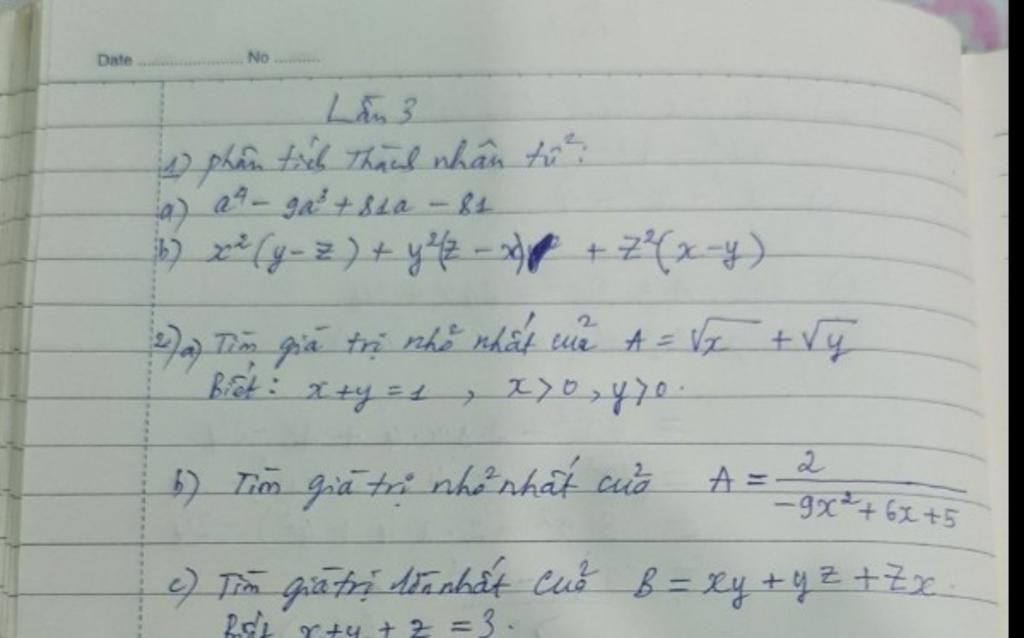 Date .................... No ..........
Lần 3
1) phân tích Thành nhân tử:
a) a⁴ - 9a³ + 81a - 81
b) x²(y-z) + y²(z-x) + z²(x-y)
2) a) Tìm giá trị nhỏ nhất của A = √x + √y
Biết: x+y = 1 , x>0, y>0.
b) Tìm giá trị nhỏ nhất của A = 2/(-9x²+6x+5)
c) Tìm giá trị lớn nhất của B = xy + yz + zx.
Biết x+y+z = 3.